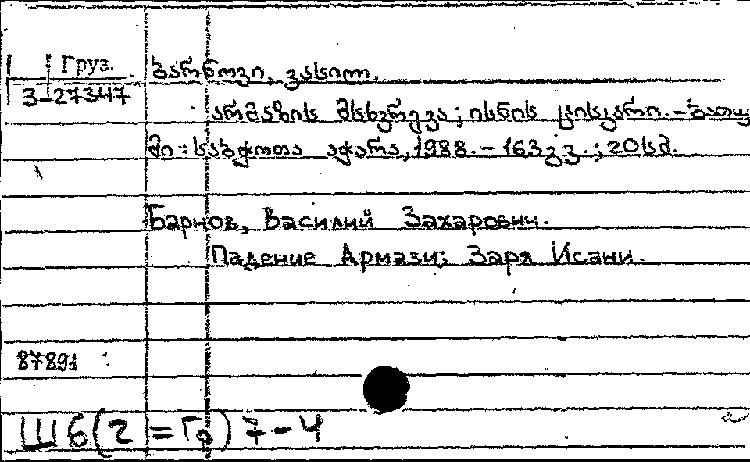 Груз.
3-27347
ბარნოვი, ვასილ.
არმაზის მსხვრევა; ისნის ცისკარი. - ბათუ
მი: საბჭოთა აჭარა, 1988. - 163 გვ.; 20 სმ.
Барнов, Василий Захарович.
Падение Армази; Заря Исани.
87891
Шб(2=Го)7-4